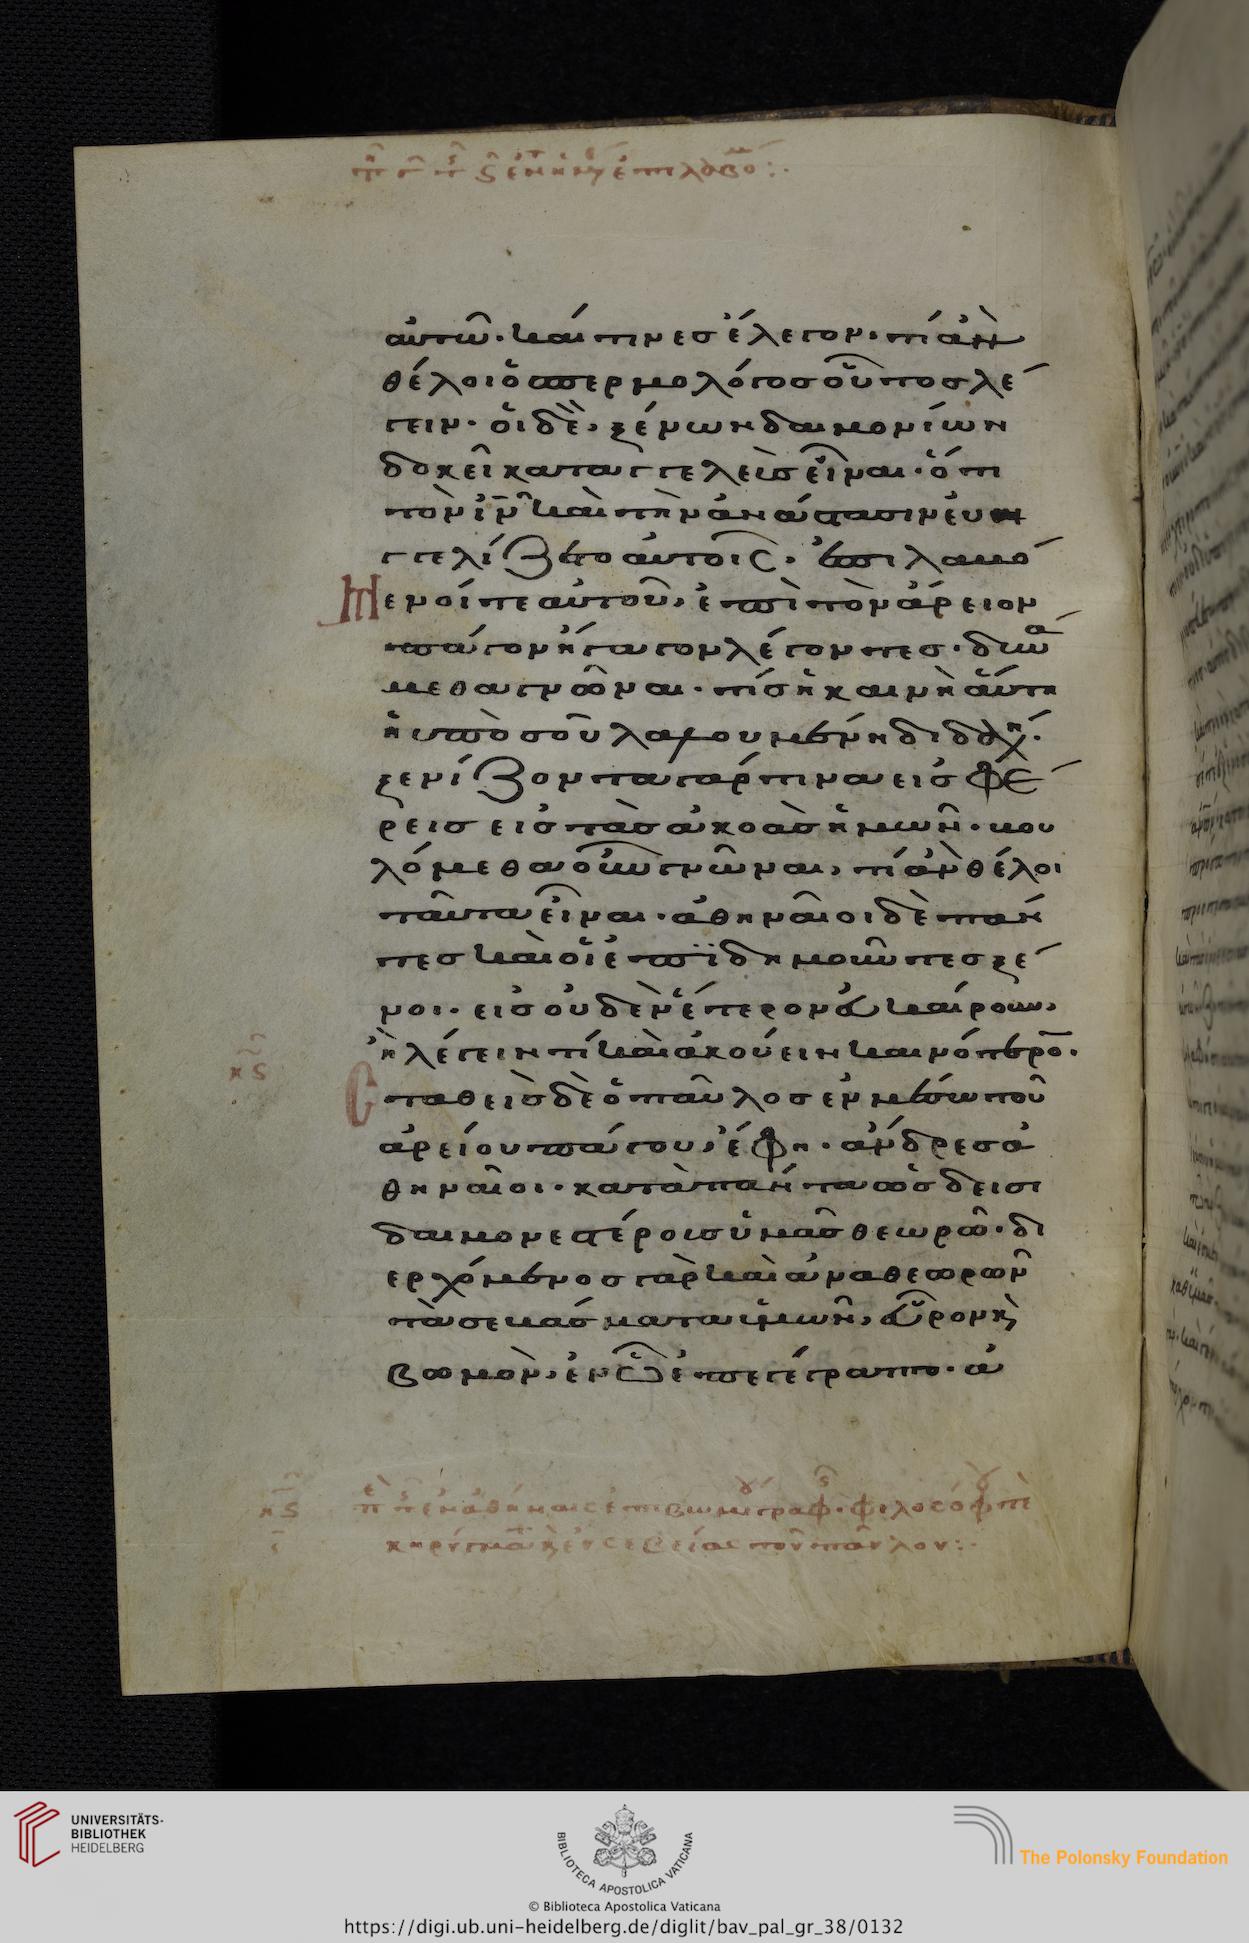 αὐτῶ· καί τινες ἔλεγον· τί ἂν
θέλοι ὁ σπερμολόγος οὗτος λέ
γειν· οἱ δὲ, ξένων δαιμονίων
δοκεῖ καταγγελεὺς εἶναι· ὅτι
τὸν ἰν καὶ τὴν ἀνάστασιν εὐη
γγελίζετο αὐτοῖς· ἐπιλαβό
μενοί τε αὐτοῦ, ἐπὶ τὸν ἄρειον
πάγον ἤγαγον λέγοντες· δυνα
μεθα γνῶναι· τίς ἡ καινὴ αὕτη
ἡ ὑπὸ σοῦ λαλουμένη διδαχή·
ξενίζοντα γάρ τινα εἰσφέ
ρεις εἰς τὰς ἀκοὰς ἡμῶν· βου
λόμεθα οὖν γνῶναι, τί ἂν θέλοι
ταῦτα εἶναι· ἀθηναῖοι δὲ πάν
τες καὶ οἱ ἐπϊδημοῦντες ξέ
νοι· εἰς οὐδὲν ἕτερον εὐκαίρουν,
ἢ λέγειν τί καὶ ἀκούειν καινότερο·
κς σταθεὶς δὲ ὁ παῦλος ἐν μέσω τοῦ
ἀρείου πάγου, ἔφη· ἄνδρες ἀ
θηναῖοι· κατὰ πάντα ὡς δεισι
δαιμονεστέροις ὑμᾶς θεωρῶ· δι
ερχόμενος γὰρ καὶ ἀναθεωρῶν
τὰ σεβάσματα ὑμῶν, εὗρον κὶ
βωμὸν, ἐν ὧ ἐπεγέγραπτο· ἀ
κηρύγμα κὶ εὐσεβείας τοῦ παύλου:·
UNIVERSITÄTS-
BIBLIOTHEK
HEIDELBERG
BIBLIOTECA APOSTOLICA VATICANA
The Polonsky Foundation
© Biblioteca Apostolica Vaticana
https://digi.ub.uni-heidelberg.de/diglit/bav_pal_gr_38/0132